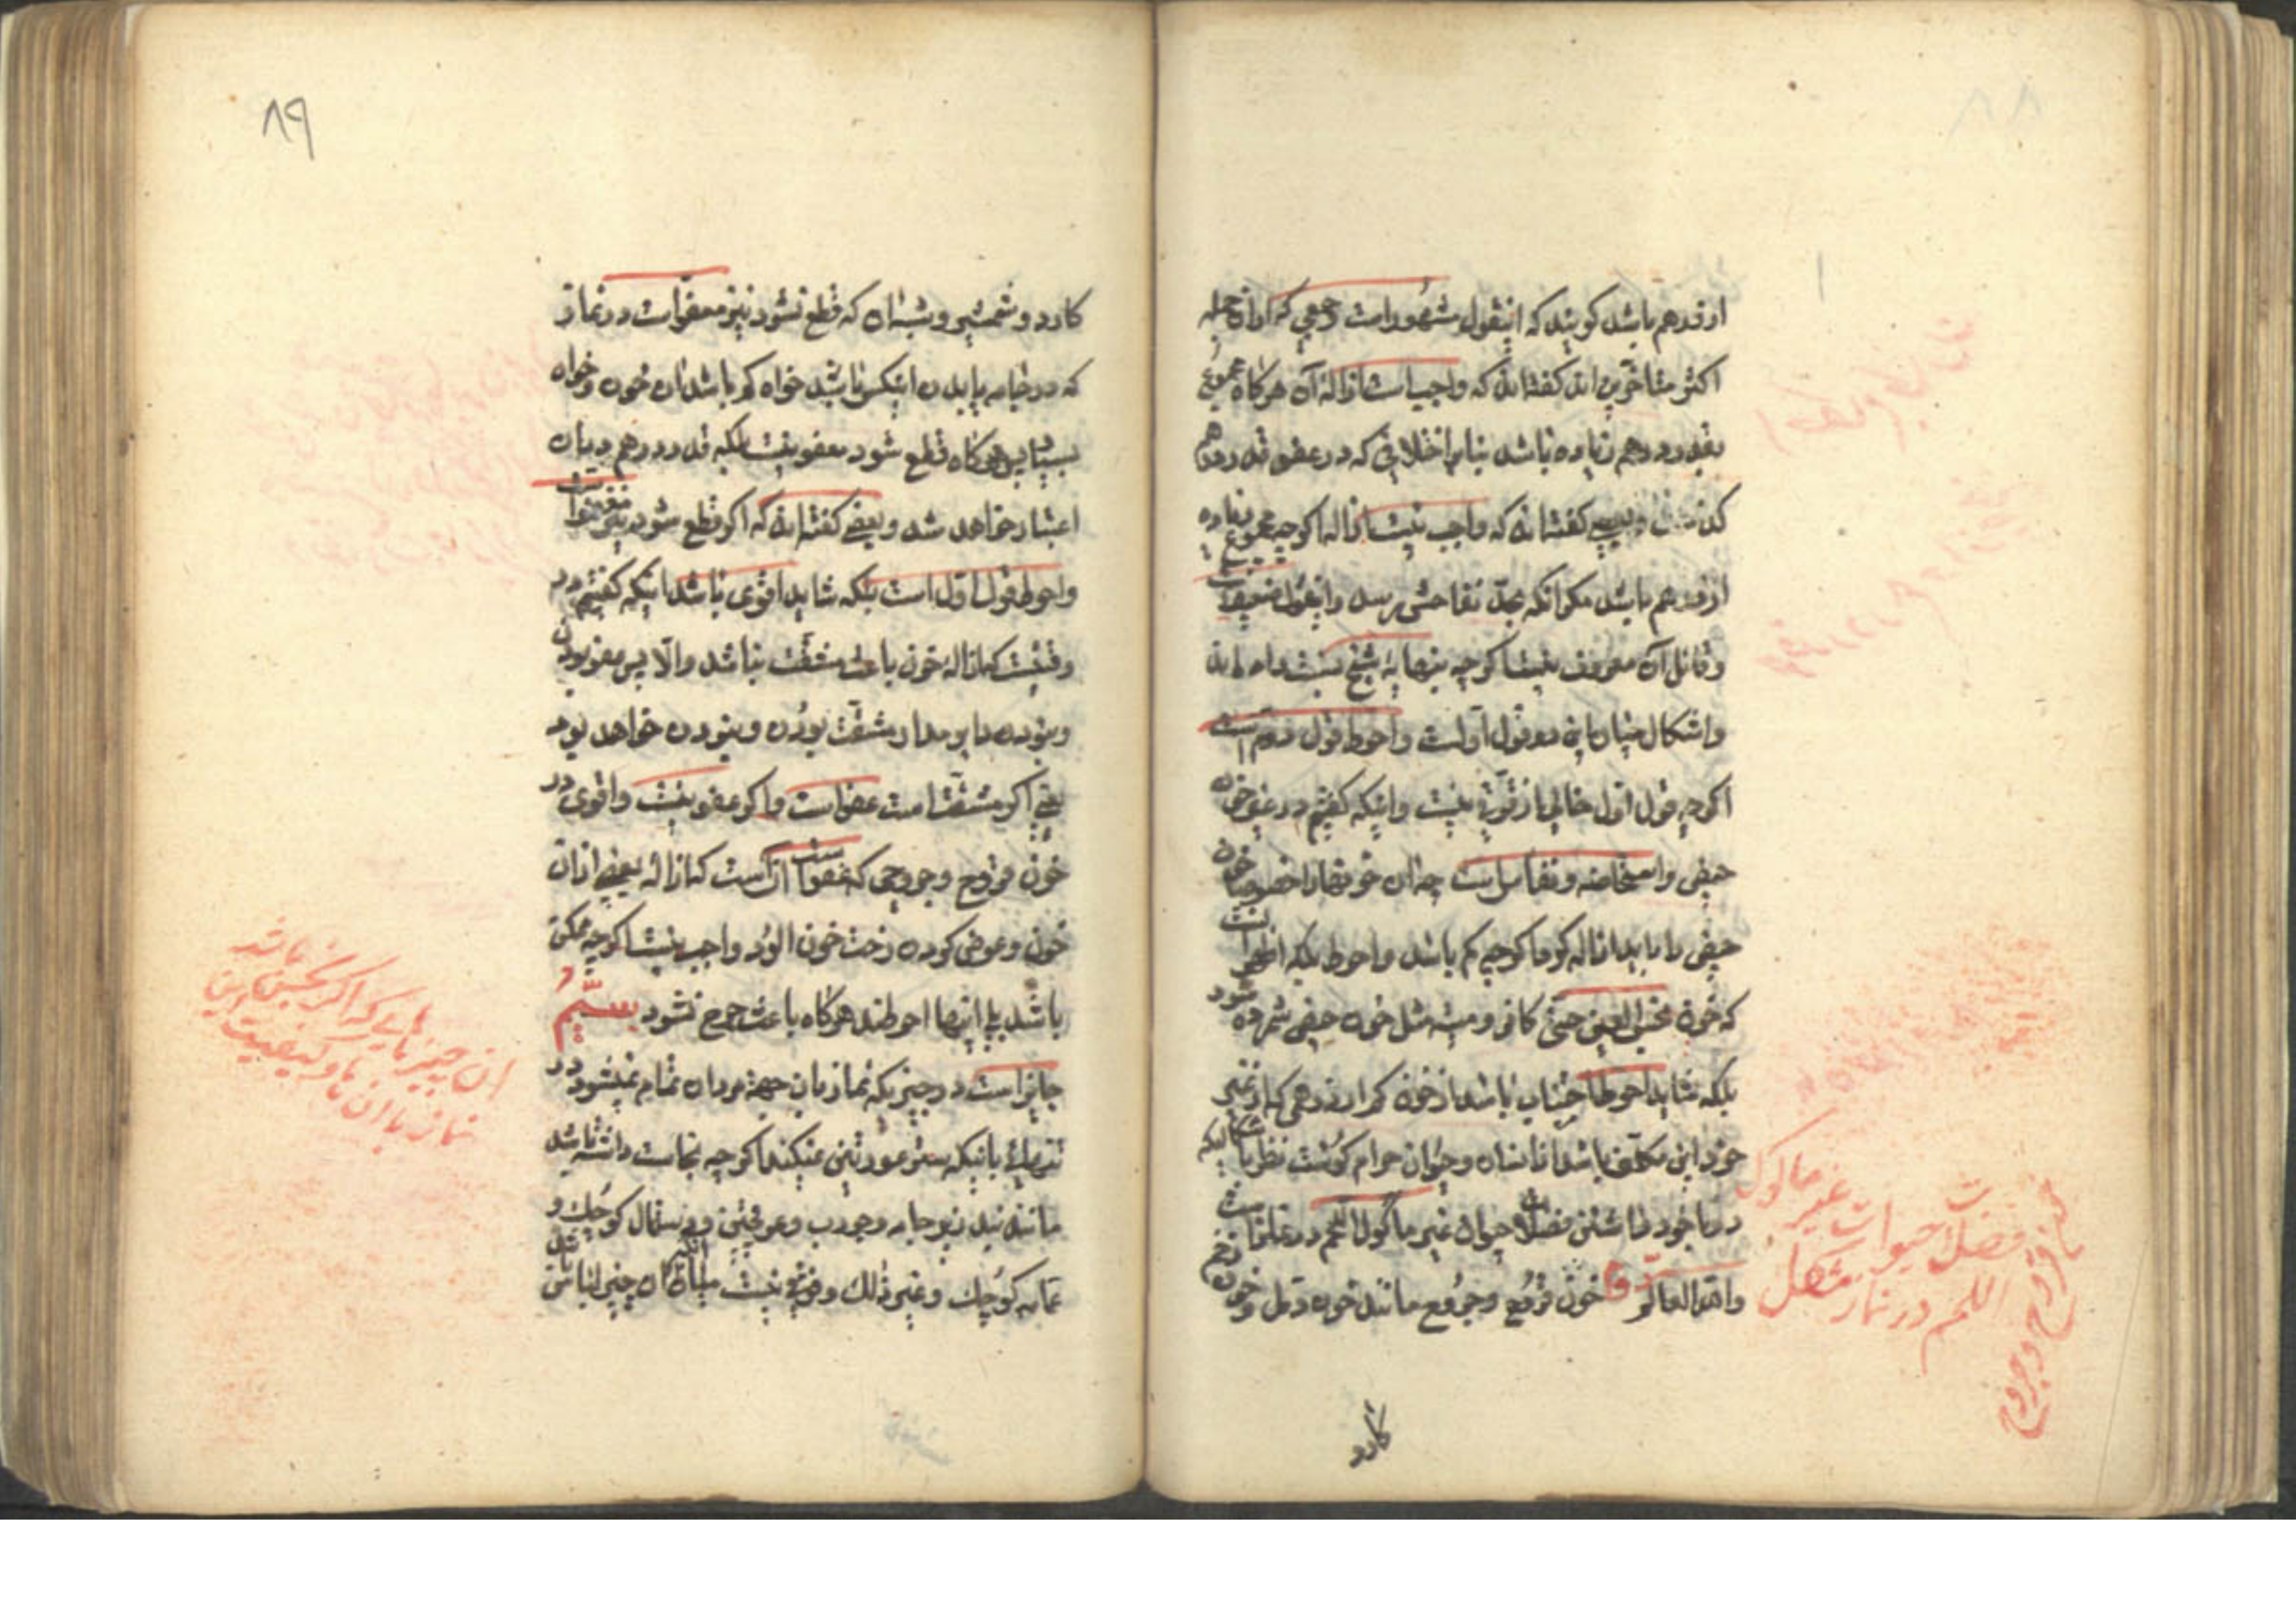 ۸۸
از درهم باشد گویند که اینقول مشهور است و جمعی که از آنجمله
اکثر متاخرین اند گفته‌اند که واجب است ازاله آن هرگاه مجموع
بقدر درهم زیاده باشد بنابر اختلافی که در عفو قدر درهم
گذشت و بعضی گفته‌اند که واجب نیست ازاله اگرچه مجموع زیاده
از درهم باشد مگر آنکه بحدّ تفاحش برسد و اینقول ضعیف است
و قائل آن معروف نیست اگرچه بنهایهٔ شیخ نسبت داده‌اند
و اشکال میان این دو قول اولست و احوط قول دوم است
اگرچه قول اول خالی از قوّتی نیست و اینکه گفتیم در غیر خون
حیض و استحاضه و نفاس است چه آن خونها را خصوصا خون
حیض را باید ازاله کرد اگرچه کم باشد و احوط بلکه اظهر آنست
که خون نجس العین حتی کافر و میته مثل خون حیض شمرده شود
بلکه شاید احوط اجتناب باشد از خون کمتر از درهمی که از غیر
خود این مکلف باشد از انسان و حیوان حرام گوشت نظر باشکالیکه
در با خود داشتن فضلات حیوان غیر ماکول اللحم در نماز است
والله العالم دوم خون قروح و جروح مانند خون دمل و خون زخم
فضلات حیوانات غیر ماکول
اللحم در نماز مشکل
خون قروح و جروح
کارد
۸۹
کارد و شمشیر و شبه آن که قطع نشود نیز معفوّ است در نماز
که در جامه یا بدن اینکس باشد خواه کم باشد آن خون و خواه
بسیار پس هرگاه قطع شود معفو نیست بلکه قدر درهم در آن
اعتبار خواهد شد و بعضی گفته‌اند که اگر قطع شود نیز معفو است
و احوط قول اول است بلکه شاید اقوی باشد اینکه گفتیم در
وقتیست که ازالهٔ خون باعث مشقت نباشد والّا پس معفو بودن
و نبودن دایر مدار مشقّت بودن و نبودن خواهد بود
یعنی اگر مشقت است عفو است و اگر عفو نیست و اقوی در
خون قروح و جروحی که معفوّ است آنست که ازاله بعضی از آن
خون و عوض کردن رخت خون آلود واجب نیست اگرچه ممکن
باشد بلی اینها احوطند هرگاه باعث حرج نشود سیّم
جایز است در چیزیکه نماز بآن جهة مردان تمام نمیشود در
تنهائی باینکه ستر عورتین نمیکند اگرچه نجاست داشته باشد
مانند بند زیرجامه و جورب و عرقچین و دستمال کوچک و
عمامه کوچک و غیر ذلک و فرقی نیست میانه آنکه آن چیز لباس باشد
آن چیزهایی که اگر نجس باشد
نماز با آن